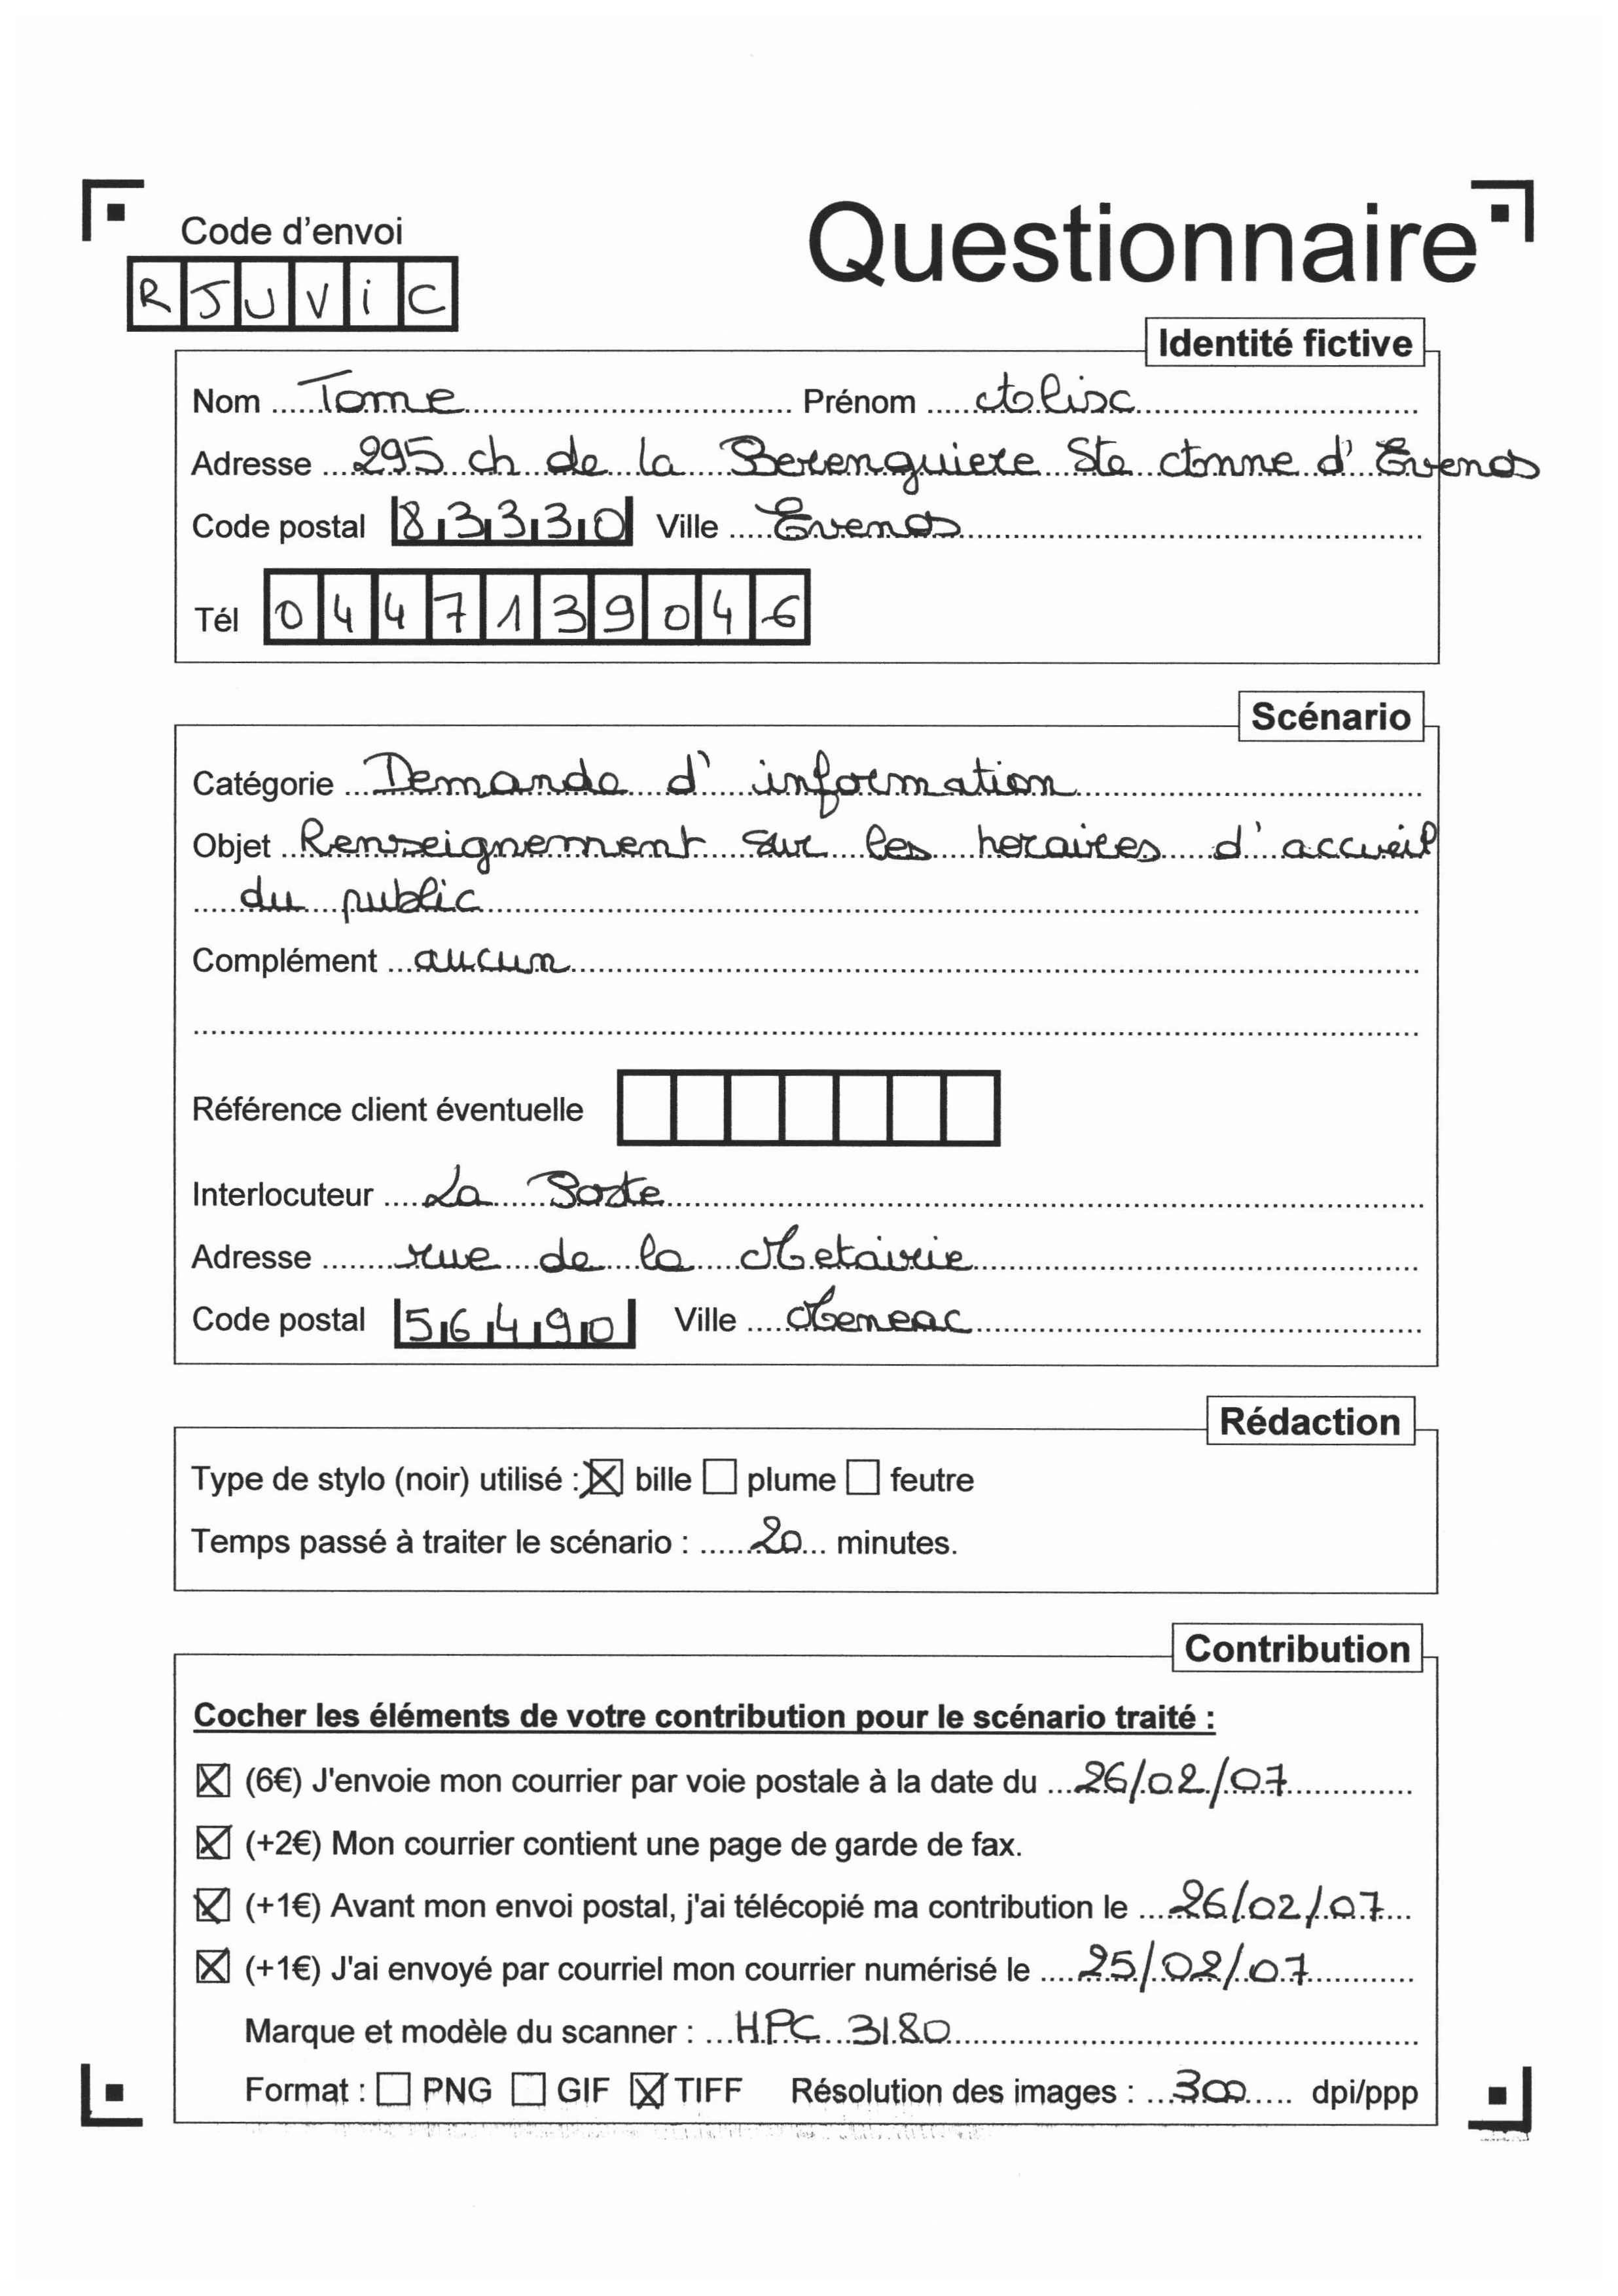 Code d'envoi
Questionnaire
RJUViC
Identité fictive
Nom Tome Prénom
Adresse 295 ch de la Berenguiere Ste Anne d' Evenos
Code postal 83330 Ville Evenos
Tél 0447139046
Scénario
Catégorie Demande d' information
Objet Renseignement sur les horaires d'accueil
du public
Complément aucun
Référence client éventuelle
Interlocuteur La Poste
Adresse rue de la Metairie
Code postal 56490 Ville Meneac
Rédaction
Type de stylo (noir) utilisé : bille plume feutre
Temps passé à traiter le scénario : 20 minutes.
Contribution
Cocher les éléments de votre contribution pour le scénario traité :
(6€) J'envoie mon courrier par voie postale à la date du 26/02/07
(+2€) Mon courrier contient une page de garde de fax.
(+1€) Avant mon envoi postal, j'ai télécopié ma contribution le 26/02/07
(+1€) J'ai envoyé par courriel mon courrier numérisé le 25/02/07
Marque et modèle du scanner : HPC 3180
Format : PNG GIF TIFF Résolution des images : 300 dpi/ppp